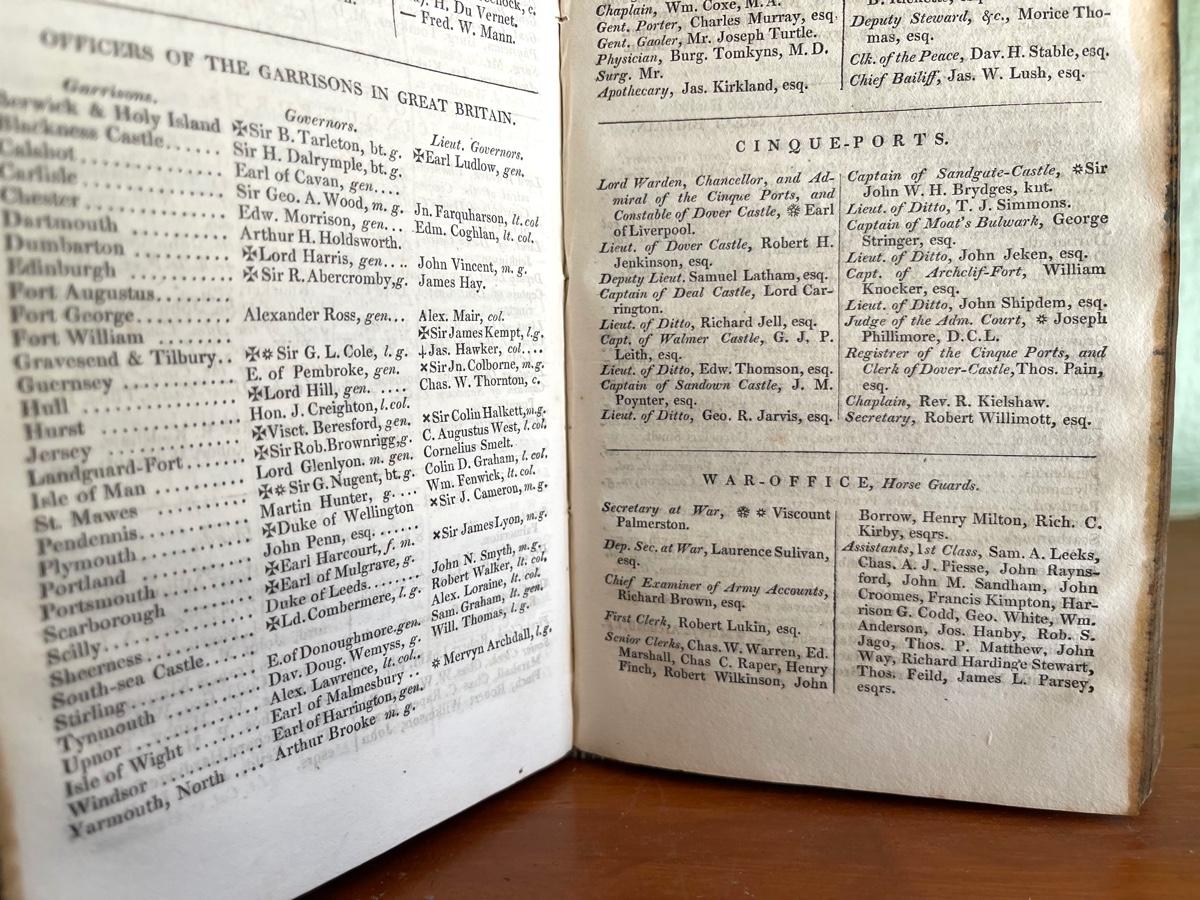 H. Du Vernet.
— Fred. W. Mann.
OFFICERS OF THE GARRISONS IN GREAT BRITAIN.
Garrisons.
Berwick & Holy Island
Blackness Castle......
Calshot ............
Carlisle ............
Chester ............
Dartmouth ........
Dumbarton ........
Edinburgh ........
Fort Augustus........
Fort George.........
Fort William ........
Gravesend & Tilbury..
Guernsey ..........
Hull ............
Hurst ............
Jersey ............
Landguard-Fort......
Isle of Man ........
St. Mawes ........
Pendennis..........
Plymouth ..........
Portland ..........
Portsmouth ........
Scarborough ........
Scilly..............
Sheerness..........
South-sea Castle......
Stirling ............
Tynmouth ..........
Upnor ............
Isle of Wight ........
Windsor ..........
Yarmouth, North ....
Governors.
✠Sir B. Tarleton, bt. g.
Sir H. Dalrymple, bt. g.
Earl of Cavan, gen....
Sir Geo. A. Wood, m. g.
Edw. Morrison, gen...
Arthur H. Holdsworth.
✠Lord Harris, gen....
✠Sir R. Abercromby, g.
Alexander Ross, gen...
✠✵ Sir G. L. Cole, l. g.
E. of Pembroke, gen.
✠Lord Hill, gen. ....
Hon. J. Creighton, l. col.
✠Visct. Beresford, gen.
✠Sir Rob. Brownrigg, g.
Lord Glenlyon. m. gen.
✠✵ Sir G. Nugent, bt. g.
Martin Hunter, g. ....
✠Duke of Wellington
John Penn, esq. .....
✠Earl Harcourt, f. m.
✠Earl of Mulgrave, g.
Duke of Leeds........
✠Ld. Combermere, l. g.
E. of Donoughmore. gen.
Dav. Doug. Wemyss, g.
Alex. Lawrence, lt. col..
Earl of Malmesbury ..
Earl of Harrington, gen.
Arthur Brooke m. g.
Lieut. Governors.
✠Earl Ludlow, gen.
Jn. Farquharson, lt. col
Edm. Coghlan, lt. col.
John Vincent, m. g.
James Hay.
Alex. Mair, col.
✠Sir James Kempt, l. g.
⸸Jas. Hawker, col....
×Sir Jn. Colborne, m. g.
Chas. W. Thornton, c.
×Sir Colin Halkett, m. g.
C. Augustus West, l. col.
Cornelius Smelt.
Colin D. Graham, l. col.
Wm. Fenwick, lt. col.
×Sir J. Cameron, m. g.
×Sir James Lyon, m. g.
John N. Smyth, m. g.
Robert Walker, lt. col.
Alex. Loraine, lt. col.
Sam. Graham, lt. gen.
Will. Thomas, l. g.
✵ Mervyn Archdall, l. g.
Chaplain, Wm. Coxe, M. A.
Gent. Porter, Charles Murray, esq.
Gent. Gaoler, Mr. Joseph Turtle.
Physician, Burg. Tomkyns, M. D.
Surg. Mr.
Apothecary, Jas. Kirkland, esq.
Deputy Steward, &c., Morice Tho-
mas, esq.
Clk. of the Peace, Dav. H. Stable, esq.
Chief Bailiff, Jas. W. Lush, esq.
CINQUE-PORTS.
Lord Warden, Chancellor, and Ad-
miral of the Cinque Ports, and
Constable of Dover Castle, ❊ Earl
of Liverpool.
Lieut. of Dover Castle, Robert H.
Jenkinson, esq.
Deputy Lieut. Samuel Latham, esq.
Captain of Deal Castle, Lord Car-
rington.
Lieut. of Ditto, Richard Jell, esq.
Capt. of Walmer Castle, G. J. P.
Leith, esq.
Lieut. of Ditto, Edw. Thomson, esq.
Captain of Sandown Castle, J. M.
Poynter, esq.
Lieut. of Ditto, Geo. R. Jarvis, esq.
Captain of Sandgate-Castle, ✵Sir
John W. H. Brydges, knt.
Lieut. of Ditto, T. J. Simmons.
Captain of Moat's Bulwark, George
Stringer, esq.
Lieut. of Ditto, John Jeken, esq.
Capt. of Archclif-Fort, William
Knocker, esq.
Lieut. of Ditto, John Shipdem, esq.
Judge of the Adm. Court, ✵ Joseph
Phillimore, D.C.L.
Registrer of the Cinque Ports, and
Clerk of Dover-Castle, Thos. Pain,
esq.
Chaplain, Rev. R. Kielshaw.
Secretary, Robert Willimott, esq.
WAR-OFFICE, Horse Guards.
Secretary at War, ❊ ✵ Viscount
Palmerston.
Dep. Sec. at War, Laurence Sulivan,
esq.
Chief Examiner of Army Accounts,
Richard Brown, esq.
First Clerk, Robert Lukin, esq.
Senior Clerks, Chas. W. Warren, Ed.
Marshall, Chas C. Raper, Henry
Finch, Robert Wilkinson, John
Borrow, Henry Milton, Rich. C.
Kirby, esqrs.
Assistants, 1st Class, Sam. A. Leeks,
Chas. A. J. Piesse, John Rayns-
ford, John M. Sandham, John
Croomes, Francis Kimpton, Har-
rison G. Codd, Geo. White, Wm.
Anderson, Jos. Hanby, Rob. S.
Jago, Thos. P. Matthew, John
Way, Richard Hardinge Stewart,
Thos. Feild, James L. Parsey,
esqrs.